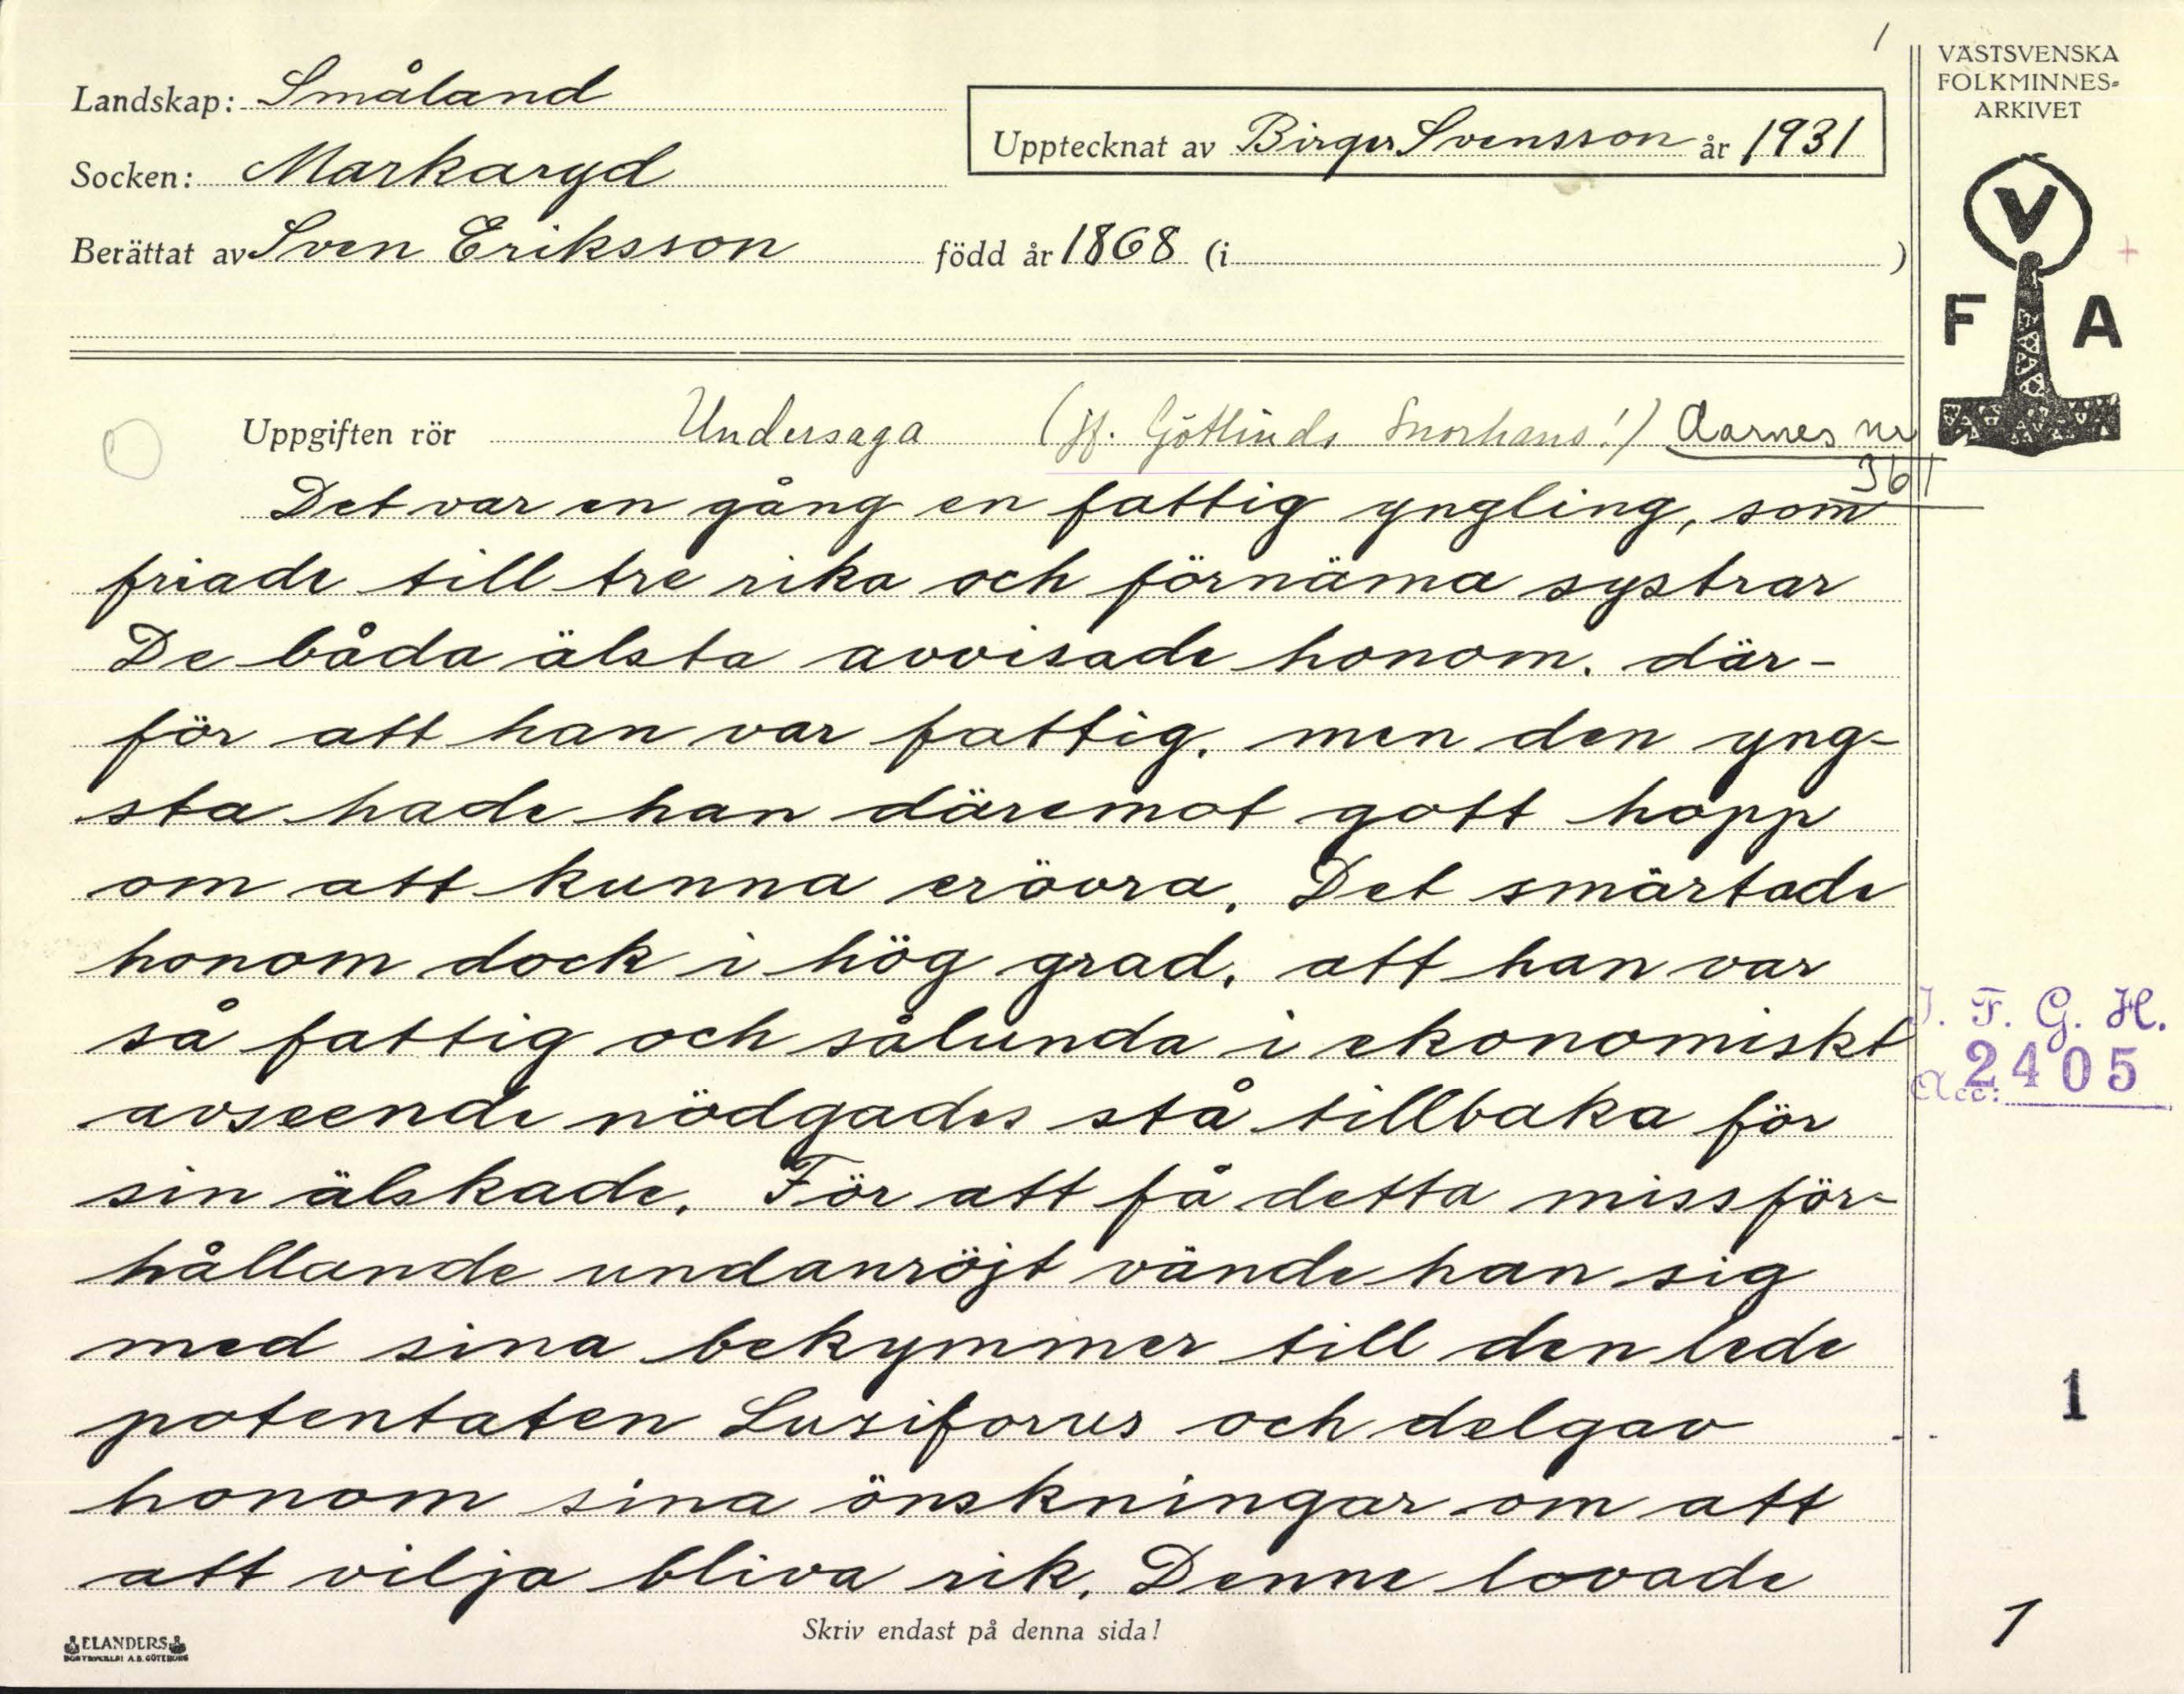 1
VÄSTSVENSKA
FOLKMINNES-
ARKIVET
Landskap: Småland
Socken: Markaryd
Upptecknat av Birger Svensson år 1931
Berättat av Sven Eriksson född år 1868 (i )
V
F A
+
Uppgiften rör Undersaga (jf. Götlinds Snorhans!) Aarnes nr
361
Det var en gång en fattig yngling, som
friade till tre rika och förnäma systrar
De båda älsta avvisade honom, där-
för att han var fattig, men den yng-
sta hade han däremot gott hopp
om att kunna erövra. Det smärtade
honom dock i hög grad, att han var
så fattig och sålunda i ekonomiskt
avseende nödgades stå tillbaka för
sin älskade. För att få detta missför-
hållande undanröjt vände han sig
med sina bekymmer till den lede
potentaten Lusiforus och delgav
honom sina önskningar om att
att vilja bliva rik. Denne lovade
I. F. G. H.
Acc: 2405
1
1
Skriv endast på denna sida!
ELANDERS
BOKTRYCKERI A.B. GÖTEBORG